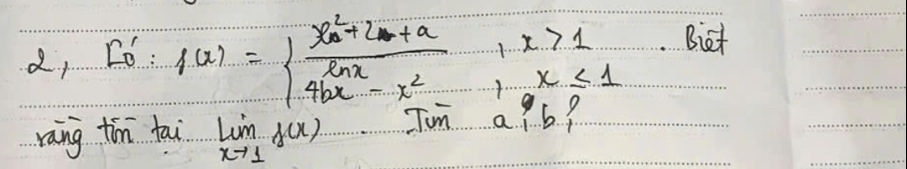 2, Có : f(x) = { (x²+2x+a)/lnx , x > 1 . Biết
4bx - x² , x ≤ 1
rằng tồn tại Lim x→1 f(x) . Tìm a? b?